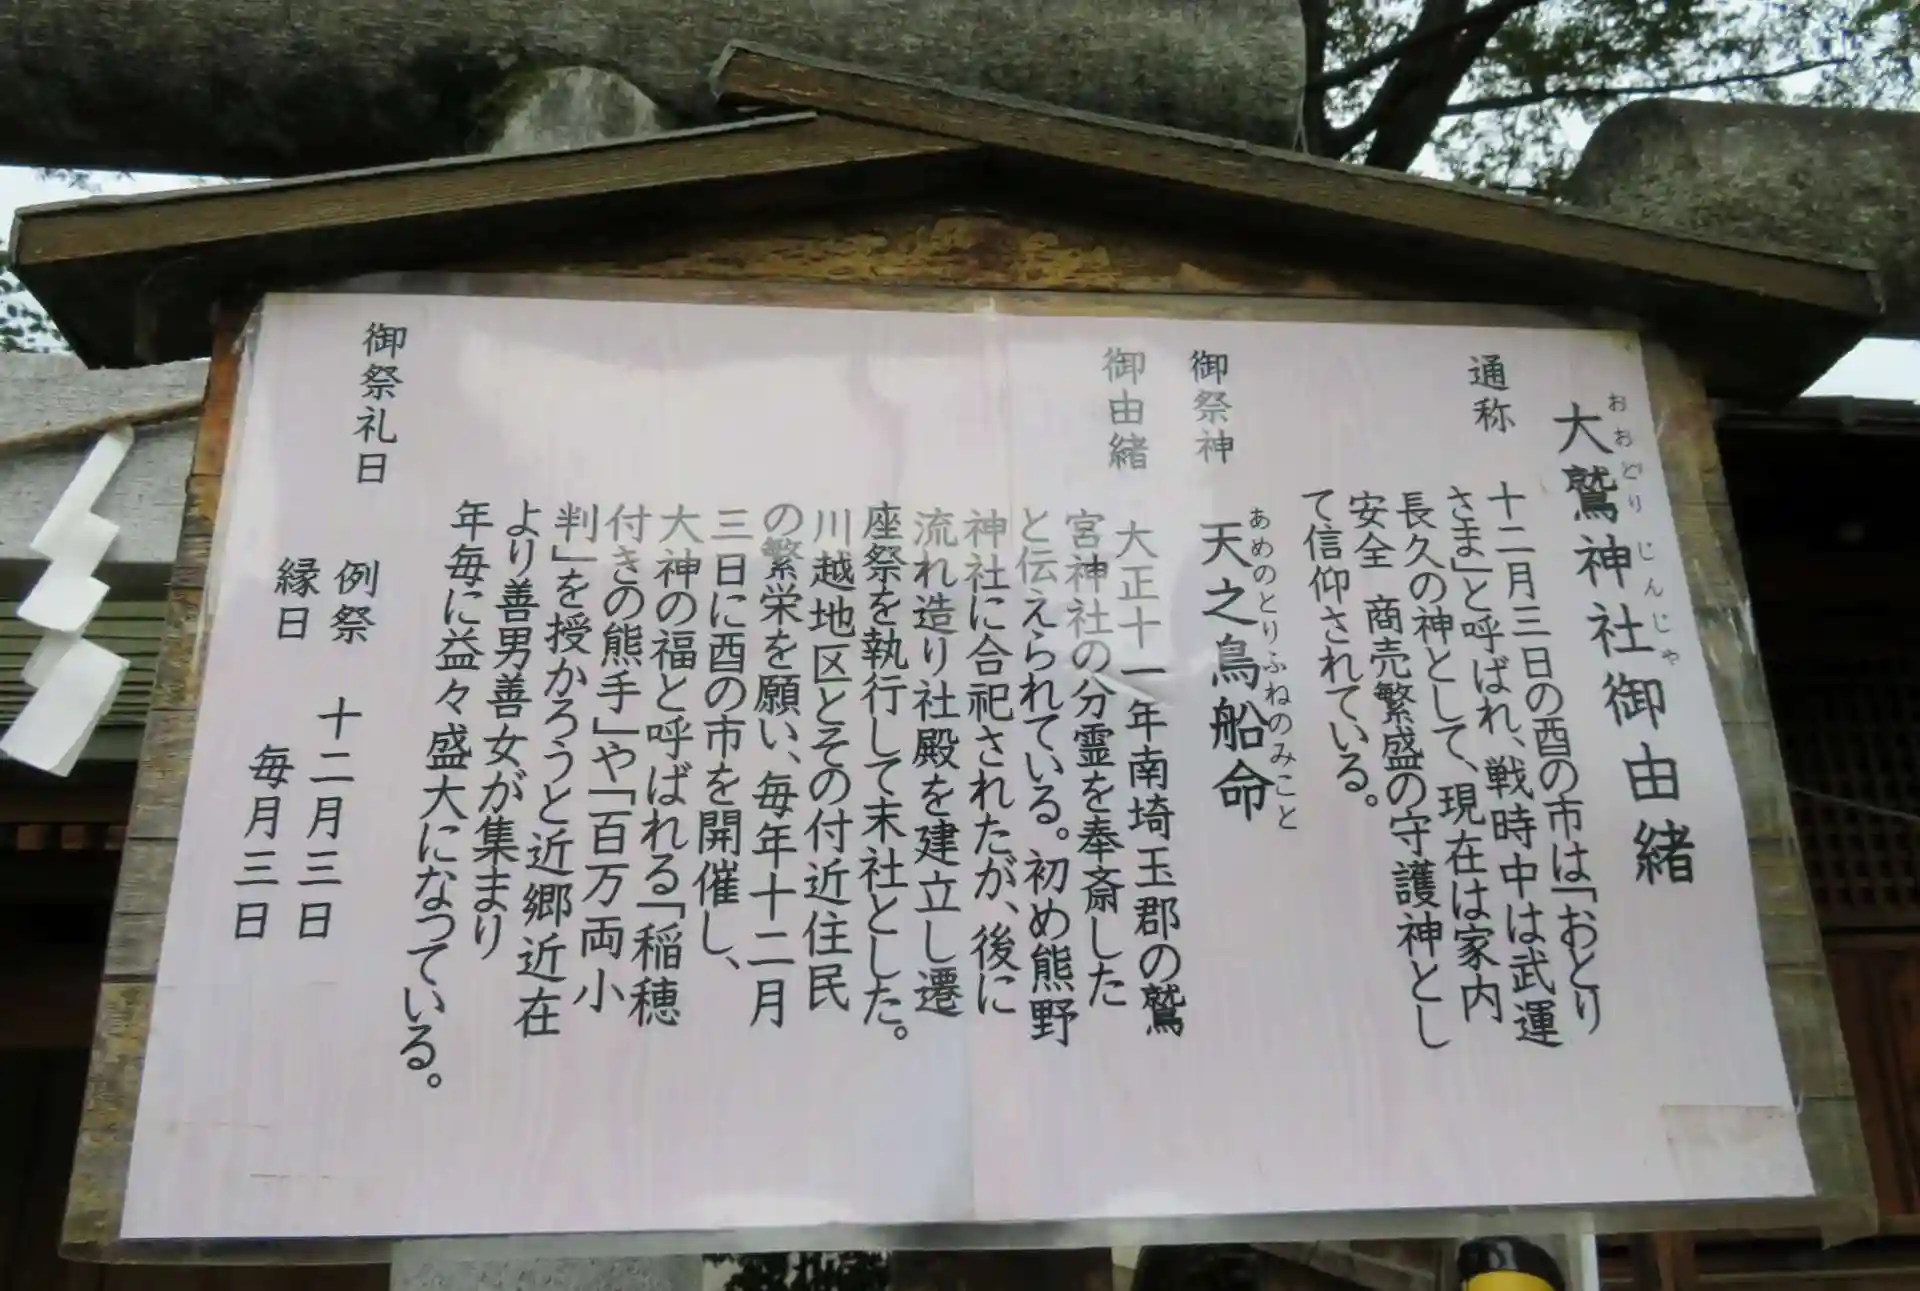 大鷲神社御由緒
おおどりじんじゃ
通称
十二月三日の酉の市は「おとり
さま」と呼ばれ、戦時中は武運
長久の神として、現在は家内
安全 商売繁盛の守護神とし
て信仰されている。
御祭神
天之鳥船命
あめのとりふねのみこと
御由緒
大正十一年南埼玉郡の鷲
宮神社の分霊を奉斎した
と伝えられている。初め熊野
神社に合祀されたが、後に
流れ造り社殿を建立し遷
座祭を執行して末社とした。
川越地区とその付近住民
の繁栄を願い、毎年十二月
三日に酉の市を開催し、
大神の福と呼ばれる「稲穂
付きの熊手」や「百万両小
判」を授かろうと近郷近在
より善男善女が集まり
年毎に益々盛大になっている。
御祭礼日
例祭 十二月三日
縁日 毎月三日